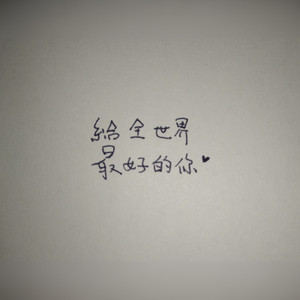 給全世界
最好的你♥